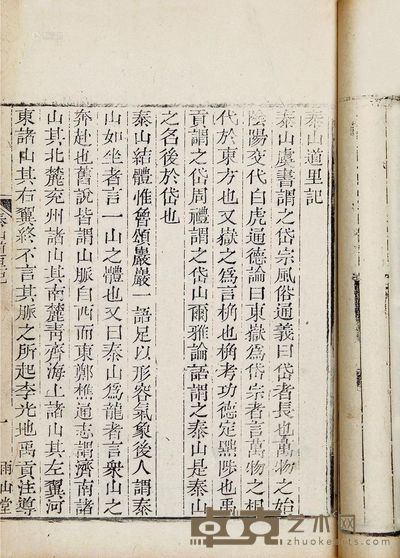 泰山道里記
泰山虞書謂之岱宗風俗通義曰岱者長也萬物之始
陰陽交代白虎通德論曰東嶽爲岱宗者言萬物之相
代於東方也又嶽之爲言桷也桷考功德定黜陟也禹
貢謂之岱周禮謂之岱山爾雅論語謂之泰山是泰山
之名後於岱也
泰山結體惟魯頌巖巖一語足以形容氣象後人謂泰
山如坐者言一山之體也又曰泰山爲龍者言衆山之
奔赴也舊說皆謂山脈自西而東鄭樵通志謂濟南諸
山其北麓兗州諸山其南麓靑齊海上諸山其左翼河
東諸山其右翼終不言其脈之所起李光地禹貢注導
泰山道里記 一 雨山堂
艺术网
zhuokearts.com